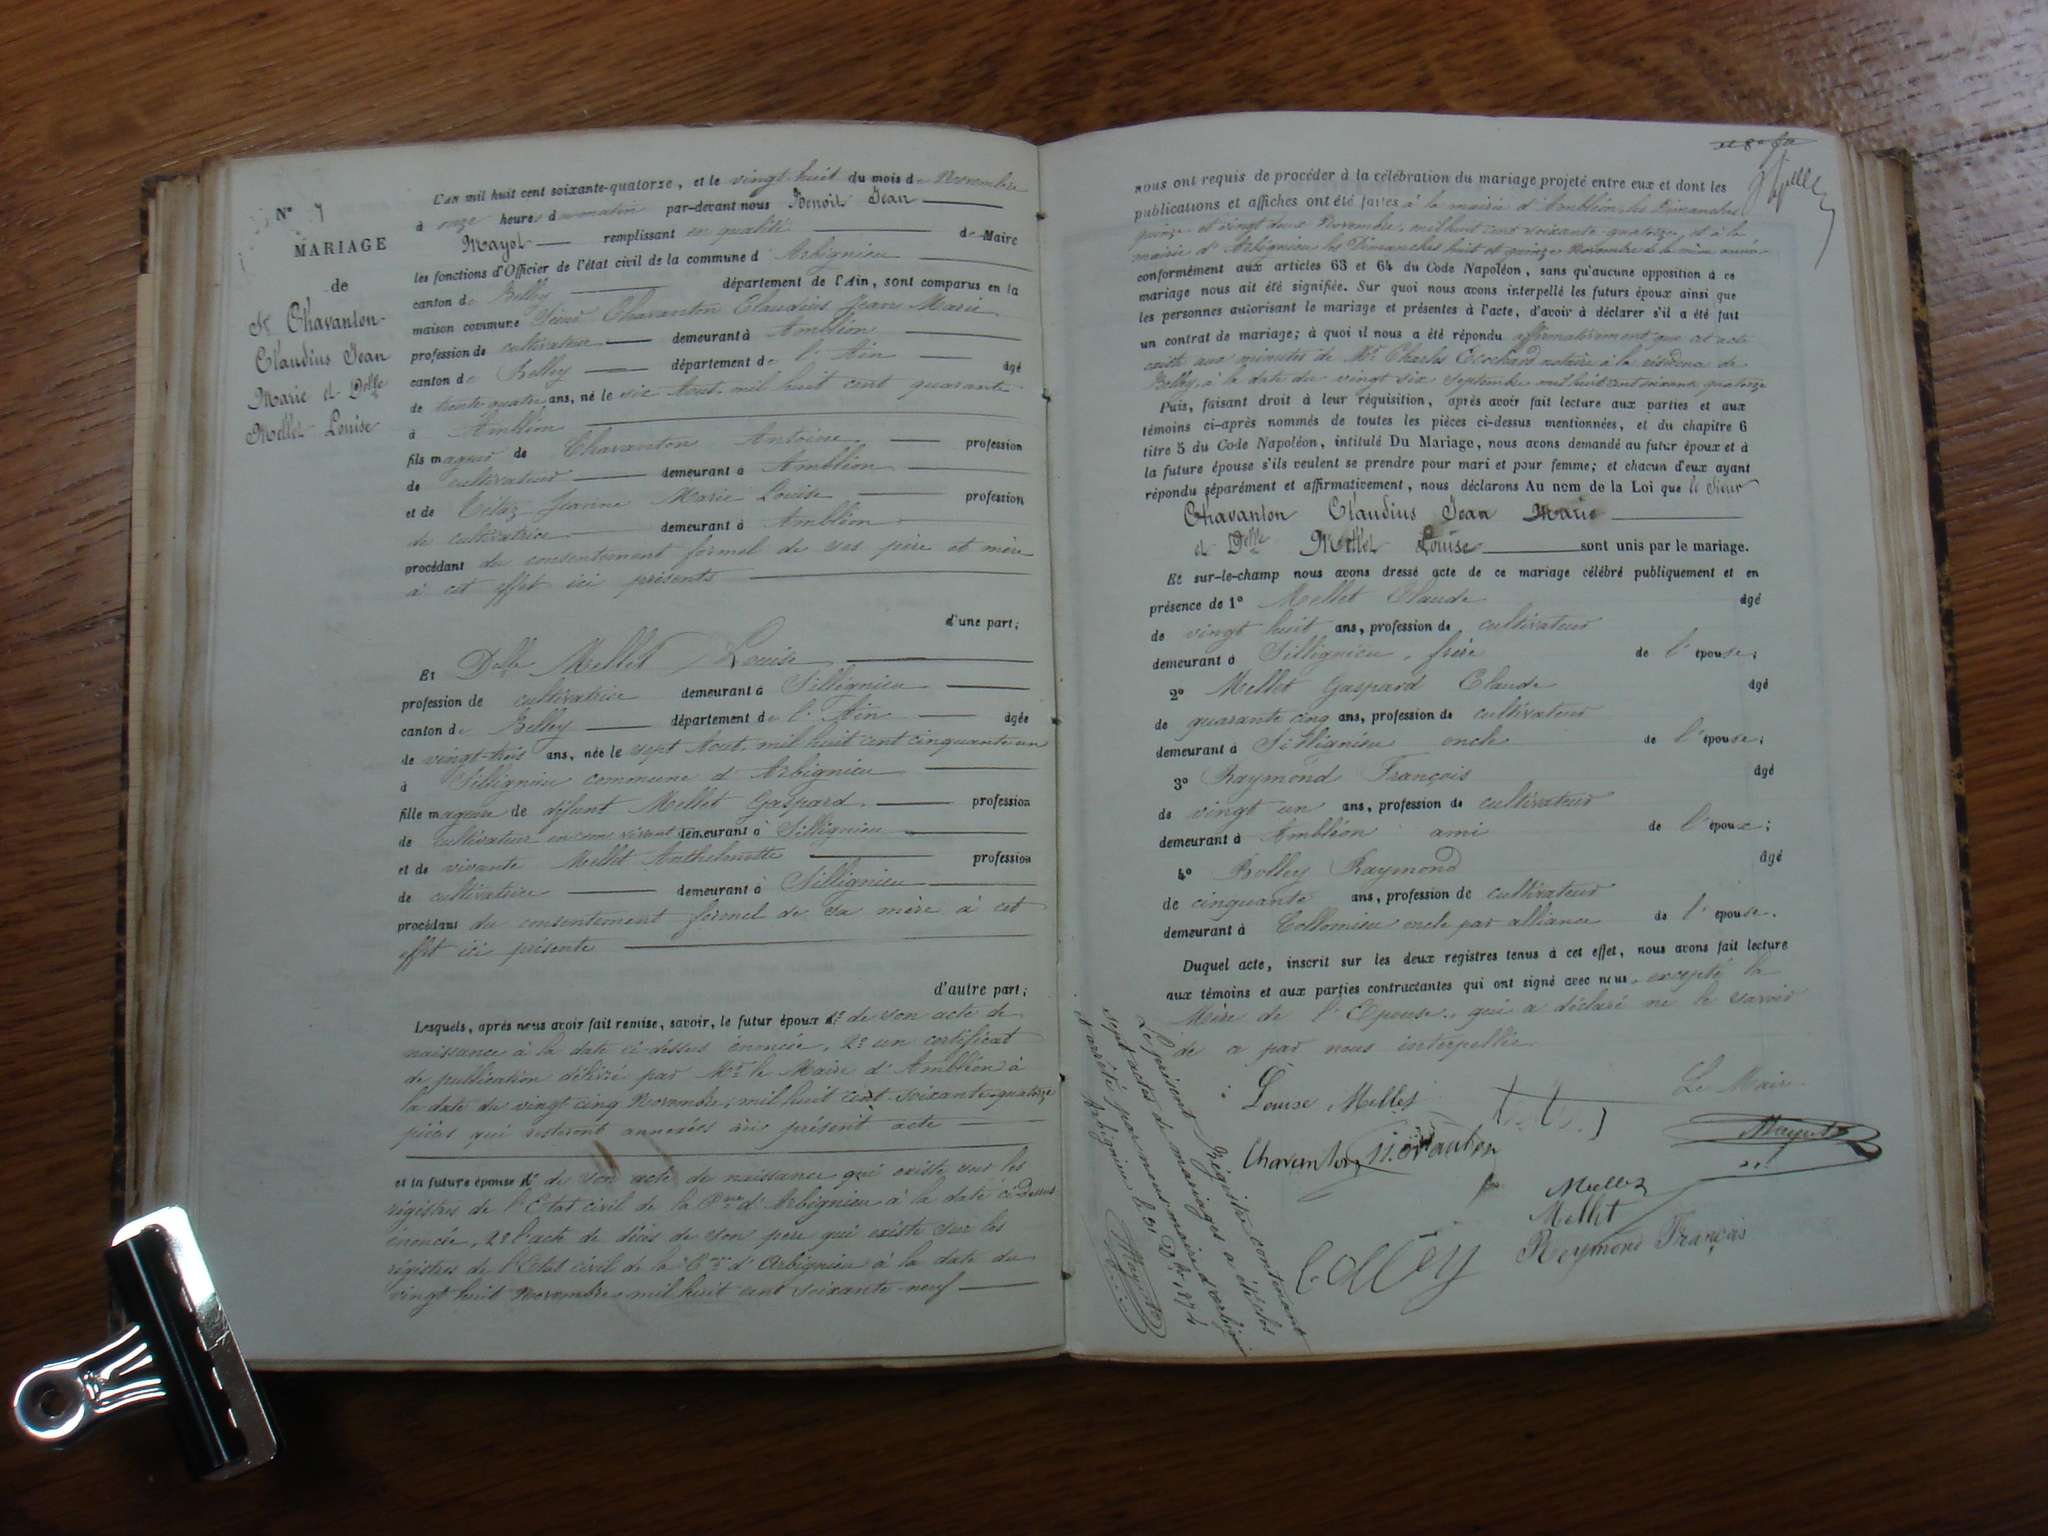 N° 7
MARIAGE
de
Sr Chavanton
Claudius Jean
Marie et Delle
Mellet Louise
L'an mil huit cent soixante-quatorze, et le vingt huit du mois de Novembre
à onze heures du matin par-devant nous Benoit Jean
Mayot remplissant en qualité de Maire
les fonctions d'Officier de l'état civil de la commune d'Arbignieu
canton de Belley département de l'Ain, sont comparus en la
maison commune Sieur Chavanton Claudius Jean Marie
profession de cultivateur demeurant à Ambléon
canton de Belley département de l'Ain âgé
de trente quatre ans, né le six Aout mil huit cent quarante
à Ambléon
fils majeur de Chavanton Antoine profession
de cultivateur demeurant à Ambléon
et de Jeanne Marie Louise profession
de cultivatrice demeurant à Ambléon
procédant du consentement formel de ses père et mère
à cet effet ici présents
d'une part;
Et Delle Mellet Louise
profession de cultivatrice demeurant à Sillignieu
canton de Belley département de l'Ain âgée
de vingt-trois ans, née le sept Aout mil huit cent cinquante un
à Sillignieu commune d'Arbignieu
fille majeure de défunt Mellet Gaspard profession
de cultivateur en son vivant demeurant à Sillignieu
et de vivante Mellet Anthelmette profession
de cultivatrice demeurant à Sillignieu
procédant du consentement formel de sa mère à cet
effet ici présente
d'autre part;
Lesquels, après nous avoir fait remise, savoir, le futur époux 1° de son acte de
naissance à la date ci-dessus énoncée, 2° un certificat
de publication délivré par Mr le Maire d'Ambléon à
la date du vingt cinq Novembre, mil huit cent soixante-quatorze
pièces qui resteront annexées au présent acte
et la future épouse 1° de son acte de naissance qui existe sur les
régistres de l'Etat civil de la Cne d'Arbignieu à la date ci-dessus
énoncée, 2° l'acte de décès de son père qui existe sur les
régistres de l'Etat civil de la Cne d'Arbignieu à la date du
vingt huit Novembre mil huit cent soixante-neuf
nous ont requis de procéder à la célébration du mariage projeté entre eux et dont les
publications et affiches ont été faites à la mairie d'Ambléon les Dimanches
quinze et vingt deux Novembre, mil huit cent soixante quatorze, et à la
mairie d'Arbignieu les Dimanches huit et quinze Novembre de la même année
conformément aux articles 63 et 64 du Code Napoléon, sans qu'aucune opposition à ce
mariage nous ait été signifiée. Sur quoi nous avons interpellé les futurs époux ainsi que
les personnes autorisant le mariage et présentes à l'acte, d'avoir à déclarer s'il a été fait
un contrat de mariage; à quoi il nous a été répondu affirmativement que cet acte
existe aux minutes de Me Charles notaire à la résidence de
Belley, à la date du vingt six Septembre mil huit cent soixante quatorze
Puis, faisant droit à leur réquisition, après avoir fait lecture aux parties et aux
témoins ci-après nommés de toutes les pièces ci-dessus mentionnées, et du chapitre 6
titre 5 du Code Napoléon, intitulé Du Mariage, nous avons demandé au futur époux et à
la future épouse s'ils veulent se prendre pour mari et pour femme; et chacun d'eux ayant
répondu séparément et affirmativement, nous déclarons Au nom de la Loi que le Sieur
Chavanton Claudius Jean Marie
et Delle Mellet Louise sont unis par le mariage.
Et sur-le-champ nous avons dressé acte de ce mariage célébré publiquement et en
présence de 1° Mellet Claude âgé
de vingt huit ans, profession de cultivateur
demeurant à Sillignieu, frère de l'épouse;
2° Mellet Gaspard Claude âgé
de quarante cinq ans, profession de cultivateur
demeurant à Sillignieu oncle de l'épouse;
3° Raymond François âgé
de vingt un ans, profession de cultivateur
demeurant à Ambléon ami de l'époux;
4° Bolley Raymond âgé
de cinquante ans, profession de cultivateur
demeurant à Collomieu oncle par alliance de l'épouse.
Duquel acte, inscrit sur les deux registres tenus à cet effet, nous avons fait lecture
aux témoins et aux parties contractantes qui ont signé avec nous, excepté la
Mère de l'Epouse, qui a déclaré ne le savoir
de ce par nous interpellée.
Louise Mellet
Le Maire
Mayot
Chavanton
Mellet
Mellet
Reymond François
Le présent Régistre contenant
sept actes de mariages a été clos
et arrêté par nous maire d'Arbignieu
Arbignieu le 31 Dbre 1874
Mayot